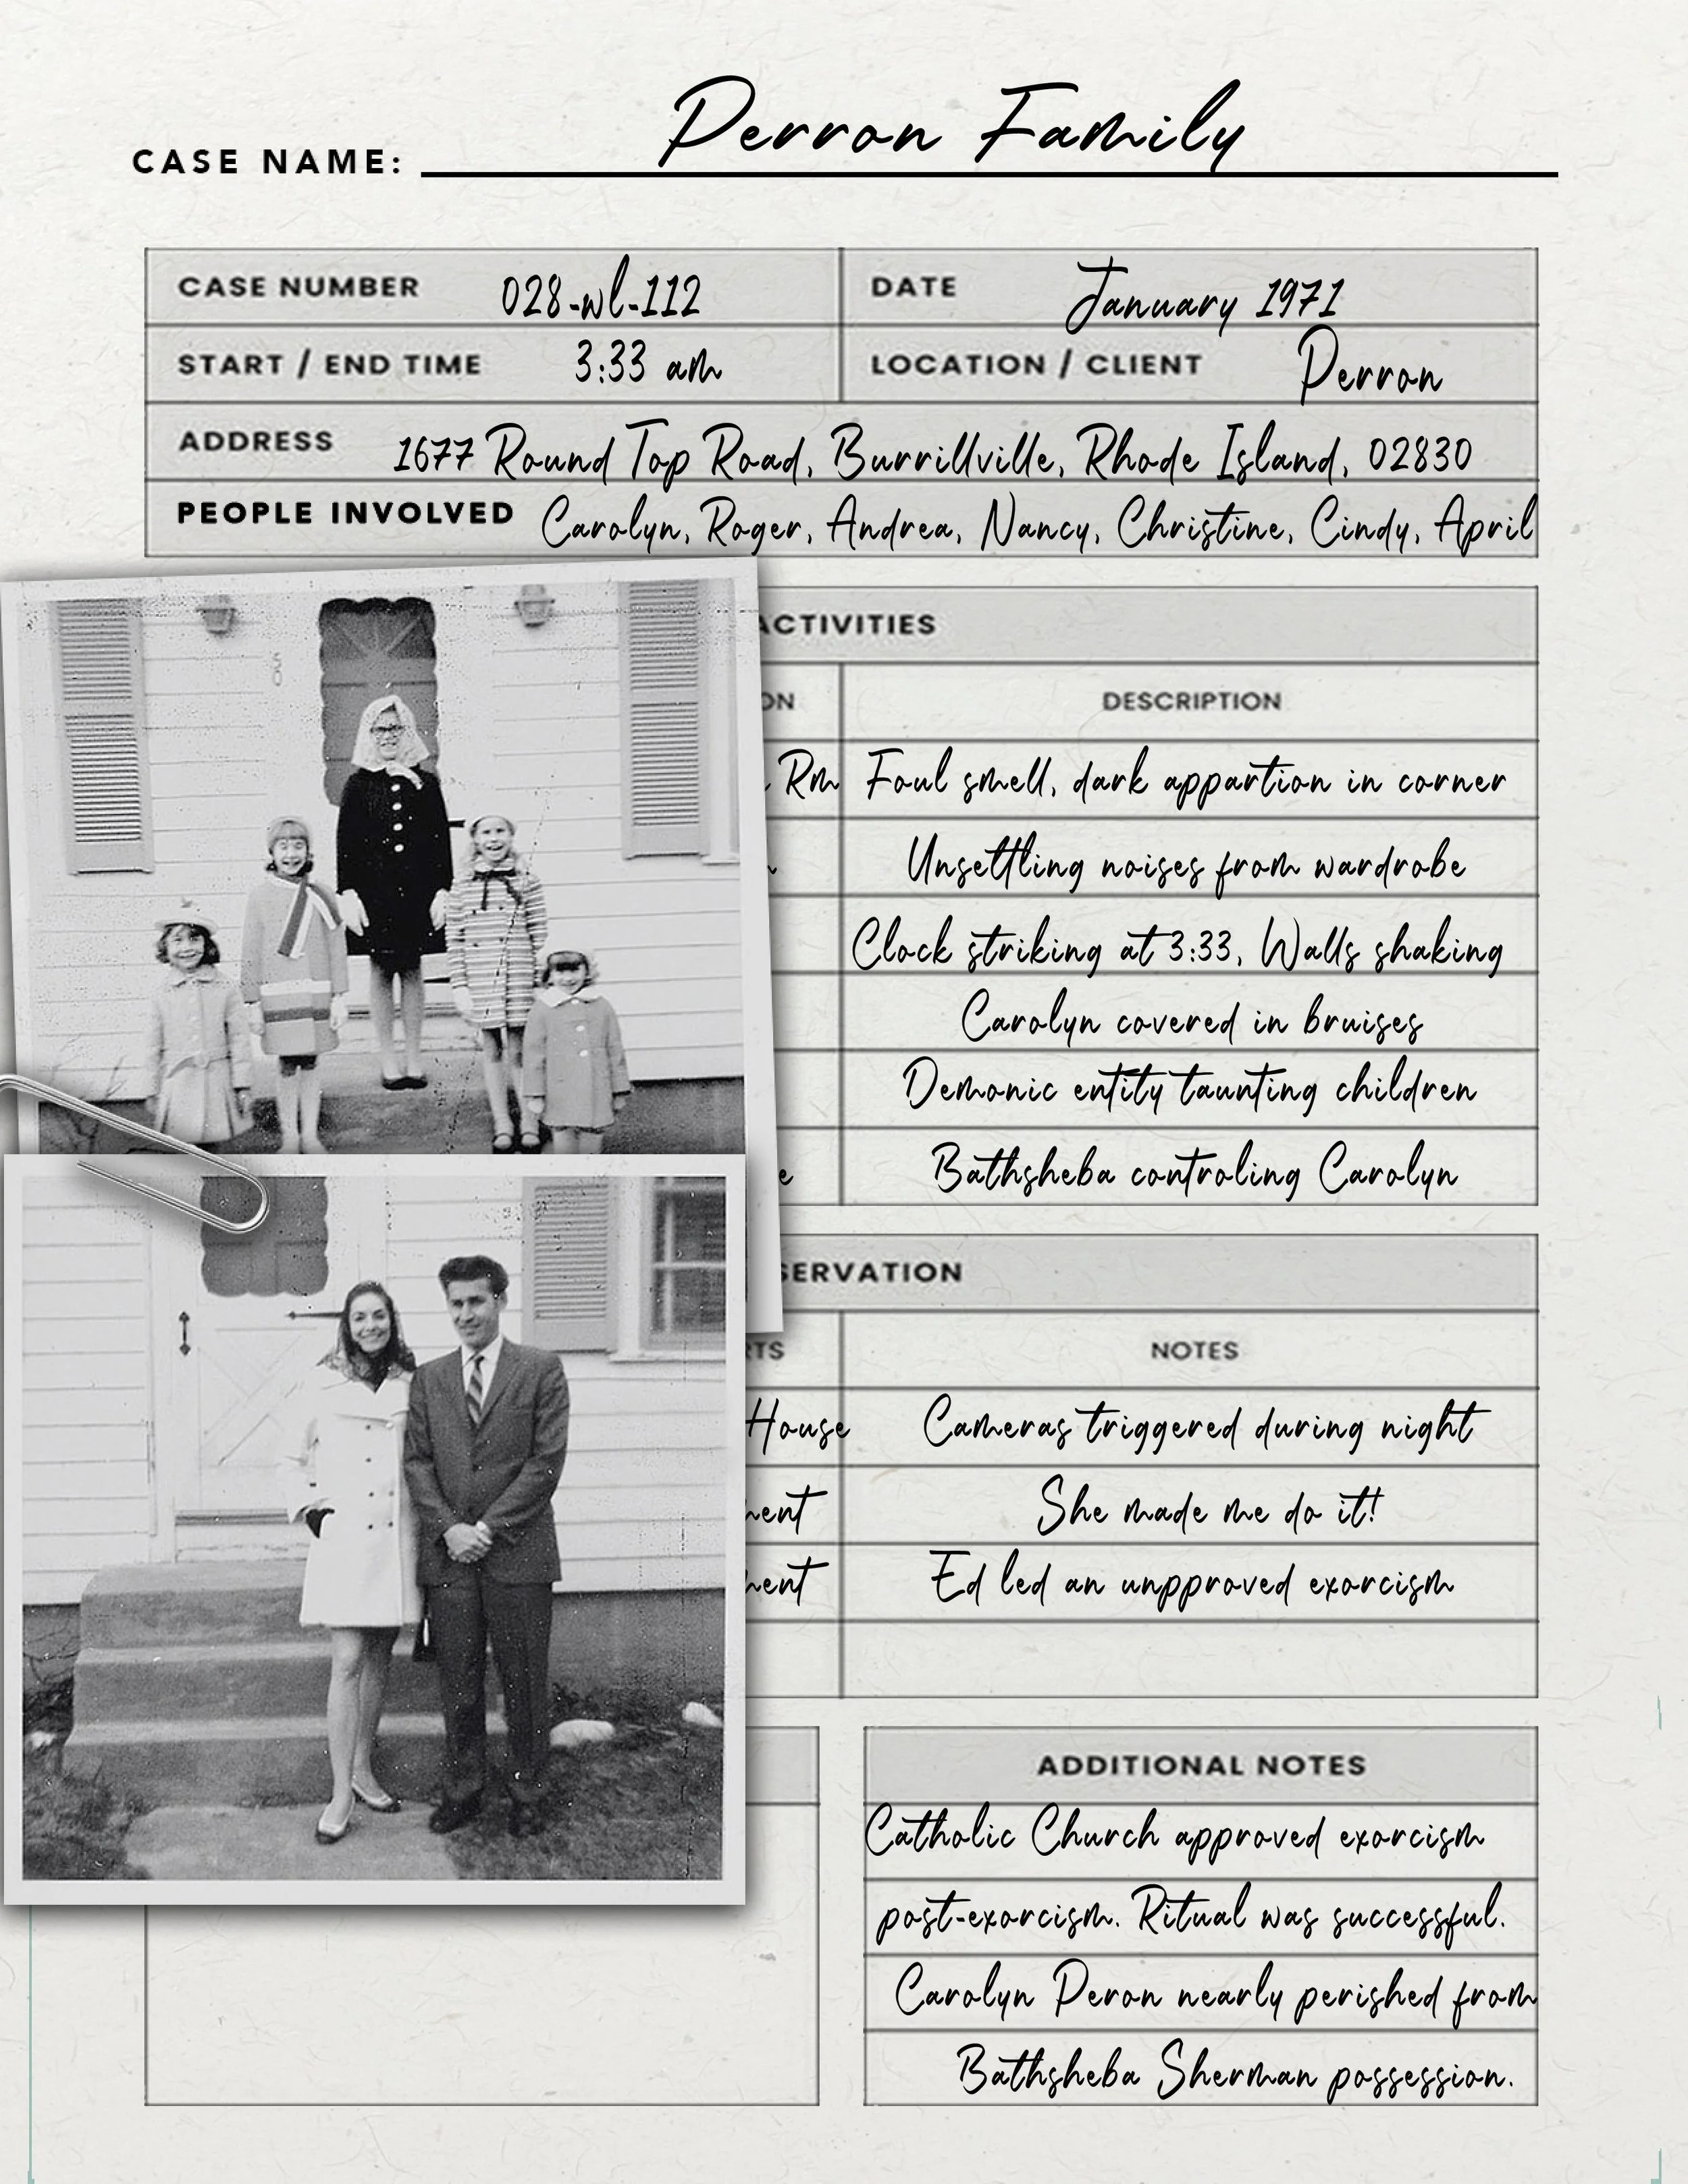 Perron Family
CASE NAME:
CASE NUMBER 028-wl-112 DATE January 1971
START / END TIME 3:33 am LOCATION / CLIENT Perron
ADDRESS 1677 Round Top Road, Burrillville, Rhode Island, 02830
PEOPLE INVOLVED Carolyn, Roger, Andrea, Nancy, Christine, Cindy, April
ACTIVITIES
ON DESCRIPTION
Rm Foul smell, dark appartion in corner
Unsettling noises from wardrobe
Clock striking at 3:33, Walls shaking
Carolyn covered in bruises
Demonic entity taunting children
e Bathsheba controling Carolyn
SERVATION
RTS NOTES
House Cameras triggered during night
ment She made me do it!
ment Ed led an unpproved exorcism
ADDITIONAL NOTES
Catholic Church approved exorcism
post-exorcism. Ritual was successful.
Carolyn Peron nearly perished from
Bathsheba Sherman possession.